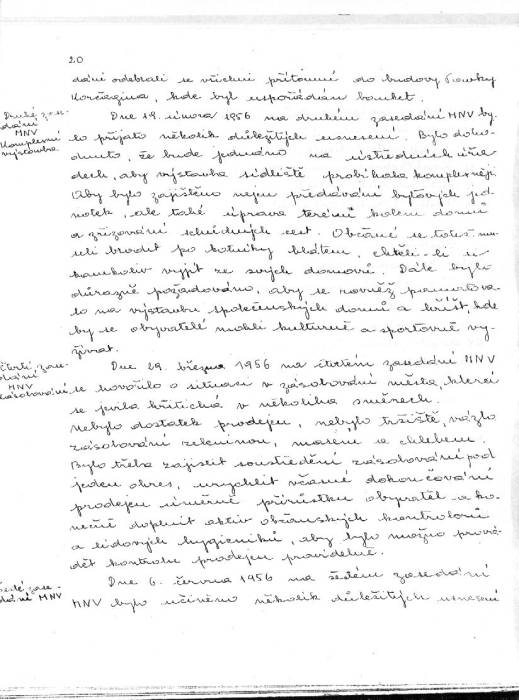 20
dání odebrali se všichni přítomní do budovy Pavky
Korčagina, kde byl uspořádán banket.
Druhé zase-
dání
MNV
Komplexní
výstavba
Dne 19. února 1956 na druhém zasedání MNV by-
lo přijato několik důležitých usnesení. Bylo doho-
dnuto, že bude jednáno na ústředních úřa-
dech, aby výstavba sídliště probíhala komplexněji.
Aby bylo zajištěno nejen předávání bytových jed-
notek, ale také úprava terénů kolem domů
a zřizování schůdných cest. Občané se totiž mu-
seli brodit po kotníky blátem, chtěli-li
kamkoliv vyjít ze svých domovů. Dále bylo
důrazně požadováno, aby se rovněž pamatova-
lo na výstavbu společenských domů a hřišť, kde
by se obyvatelé mohli kulturně a sportovně vy-
žívat.
Čtvrté zase-
dání
MNV
zásobování
Dne 29. března 1956 na čtvrtém zasedání MNV
se hovořilo o situaci v zásobování města, která
se jevila kritická v několika směrech.
Nebylo dostatek prodejen, nebylo tržiště, vázlo
zásobování zeleninou, masem a chlebem.
Bylo třeba zajistit soustředění zásobování pod
jeden okres, urychlit včasné dokončování
prodejen úměrně přírůstku obyvatel a ko-
nečně doplnit aktiv občanských kontrolorů
a lidových hygieniků, aby bylo možno prová-
dět kontrolu prodejen pravidelně.
Šesté zase-
dání MNV
Dne 6. června 1956 na šestém zasedání
MNV bylo učiněno několik důležitých usnesení